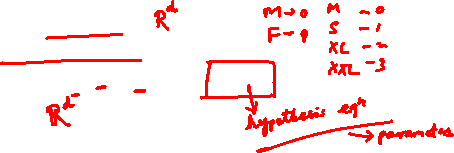 ℝᵈ
M → 0
F → 1
M - 0
S - 1
XL - 2
XXL - 3
ℝᵈ
hypothesis eqn
→ parameters